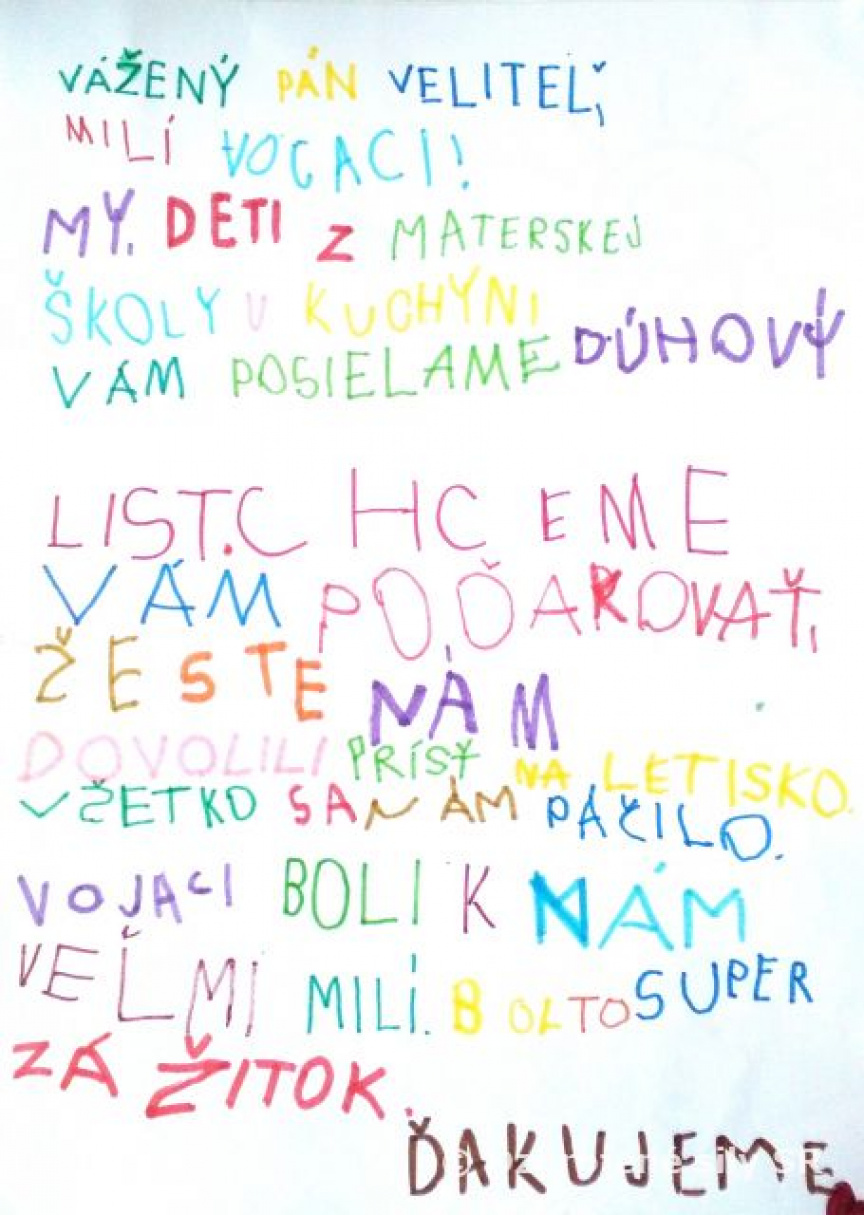 VÁŽENÝ PÁN VELITEĽ,
MILÍ VOCACI!
MY, DETI Z MATERSKEJ
ŠKOLY V KUCHYNI
VÁM POSIELAME DÚHOVÝ
LIST. C HC EME
VÁM POĎAKOVAŤ,
ŽE STE NÁM
DOVOLILI PRÍSŤ NA LETISKO.
VŠETKO SA NÁM PÁČILO.
VOJACI BOLI K NÁM
VEĽMI MILÍ. BOL TO SUPER
ZÁŽITOK.
ĎAKUJEME